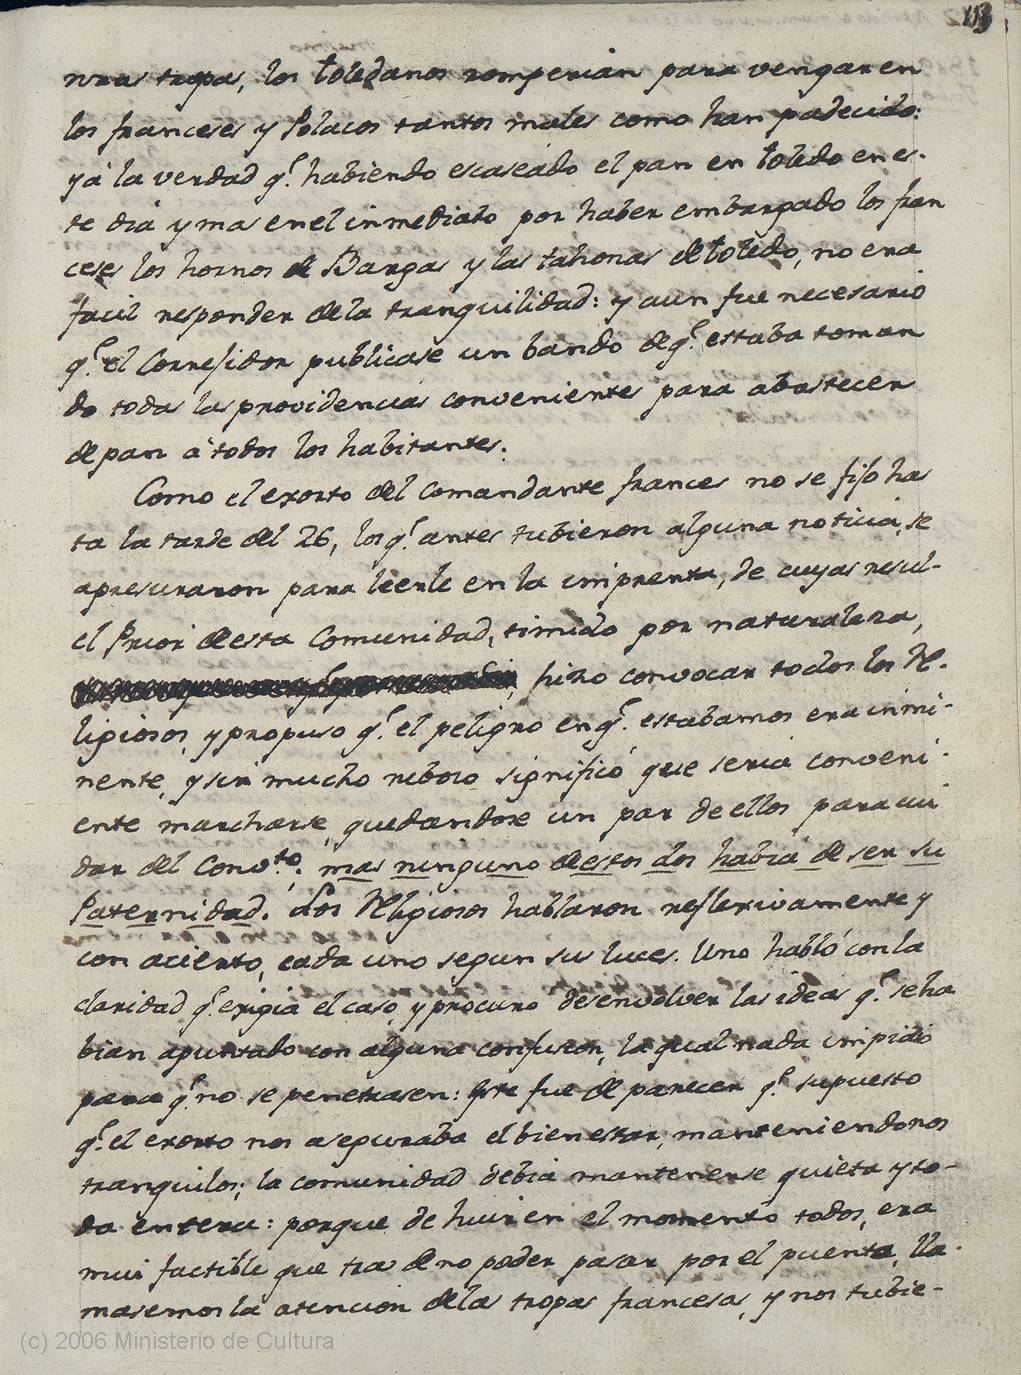 113
nras tropas, los toledanos romperian para vengar en
los franceses y Polacos tantos males como han padecido:
y á la verdad q.ͤ habiendo escaseado el pan en toledo en es-
te dia y mas en el inmediato por haber embargado los fran
ceses los hornos de Bargas y las tahonas de toledo, no era
facil responder de la tranquilidad: y aun fue necesario
q.ͤ el Corregidor publicase un bando de q.ͤ estaba toman
do todas las providencias convenientes para abastecer
de pan á todos los habitantes.
Como el exorto del Comandante frances no se fijo has
ta la tarde del 26, los q.ͤ antes tubieron alguna noticia, se
apresuraron para leerle en la imprenta, de cuyas resul-
el Prior de esta Comunidad, timido por naturaleza,
hizo convocar todos los Re-
ligiosos, y propuso q.ͤ el peligro en q.ͤ estabamos era inmi-
nente, y sin mucho rebozo significó que seria conveni-
ente marcharse, quedandose un par de ellos para cui
dar del Conv.ᵗᵒ; mas ninguno de estos dos habia de ser su
Paternidad. Los Religiosos hablaron reflexivamente y
con acierto, cada uno segun sus luces. Uno habló con la
claridad q.ͤ exigia el caso, y procuró desenvolver las ideas q.ͤ se ha
bian apuntado con alguna confusion, la qual nada impidió
para q.ͤ no se penetrasen: Este fue de parecer q.ͤ supuesto
q.ͤ el exorto nos aseguraba el bien estar, manteniendonos
tranquilos; la comunidad debia mantenerse quieta y to-
da entera: porque de huir en el momento todos, era
mui factible que tras de no poder pasar por el puente, lla-
masemos la atencion de las tropas francesas, y nos tubie-
(c) 2006 Ministerio de Cultura